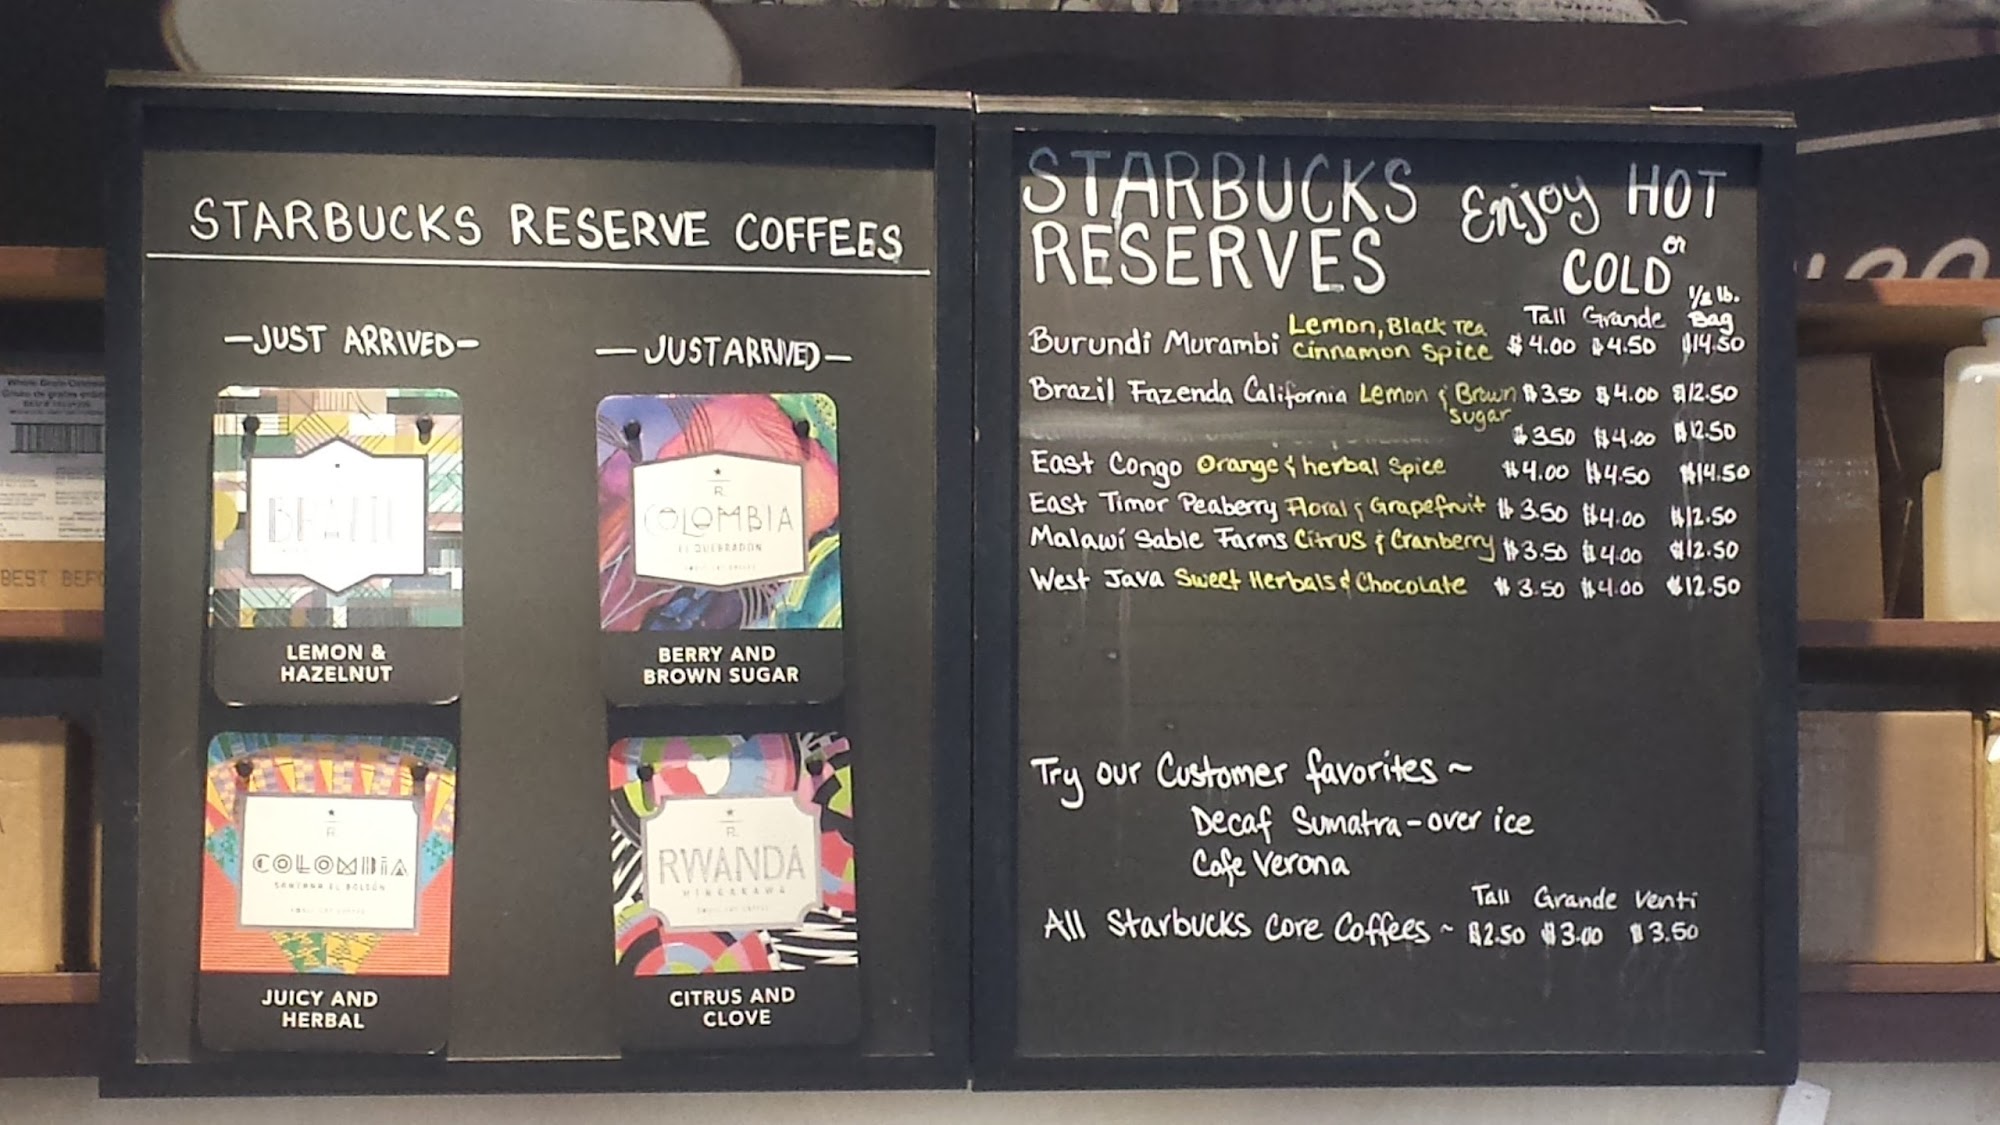 STARBUCKS RESERVE COFFEES
—JUST ARRIVED—
— JUST ARRIVED —
BRAZIL
LEMON &
HAZELNUT
R.
COLOMBIA
EL QUEBRADON
BERRY AND
BROWN SUGAR
R.
COLOMBIA
JUICY AND
HERBAL
R.
RWANDA
CITRUS AND
CLOVE
STARBUCKS
RESERVES
Enjoy HOT
or
COLD
Tall Grande 1/2 lb. Bag
Burundi Murambi Lemon, Black Tea Cinnamon Spice $4.00 $4.50 $14.50
Brazil Fazenda California Lemon & Brown Sugar $3.50 $4.00 $12.50
$3.50 $4.00 $12.50
East Congo Orange & herbal Spice $4.00 $4.50 $14.50
East Timor Peaberry Floral & Grapefruit $3.50 $4.00 $12.50
Malawi Sable Farms Citrus & Cranberry $3.50 $4.00 $12.50
West Java Sweet Herbals & Chocolate $3.50 $4.00 $12.50
Try our Customer favorites ~
Decaf Sumatra - over ice
Cafe Verona
Tall Grande Venti
All Starbucks Core Coffees ~ $2.50 $3.00 $3.50
BEST BEFO